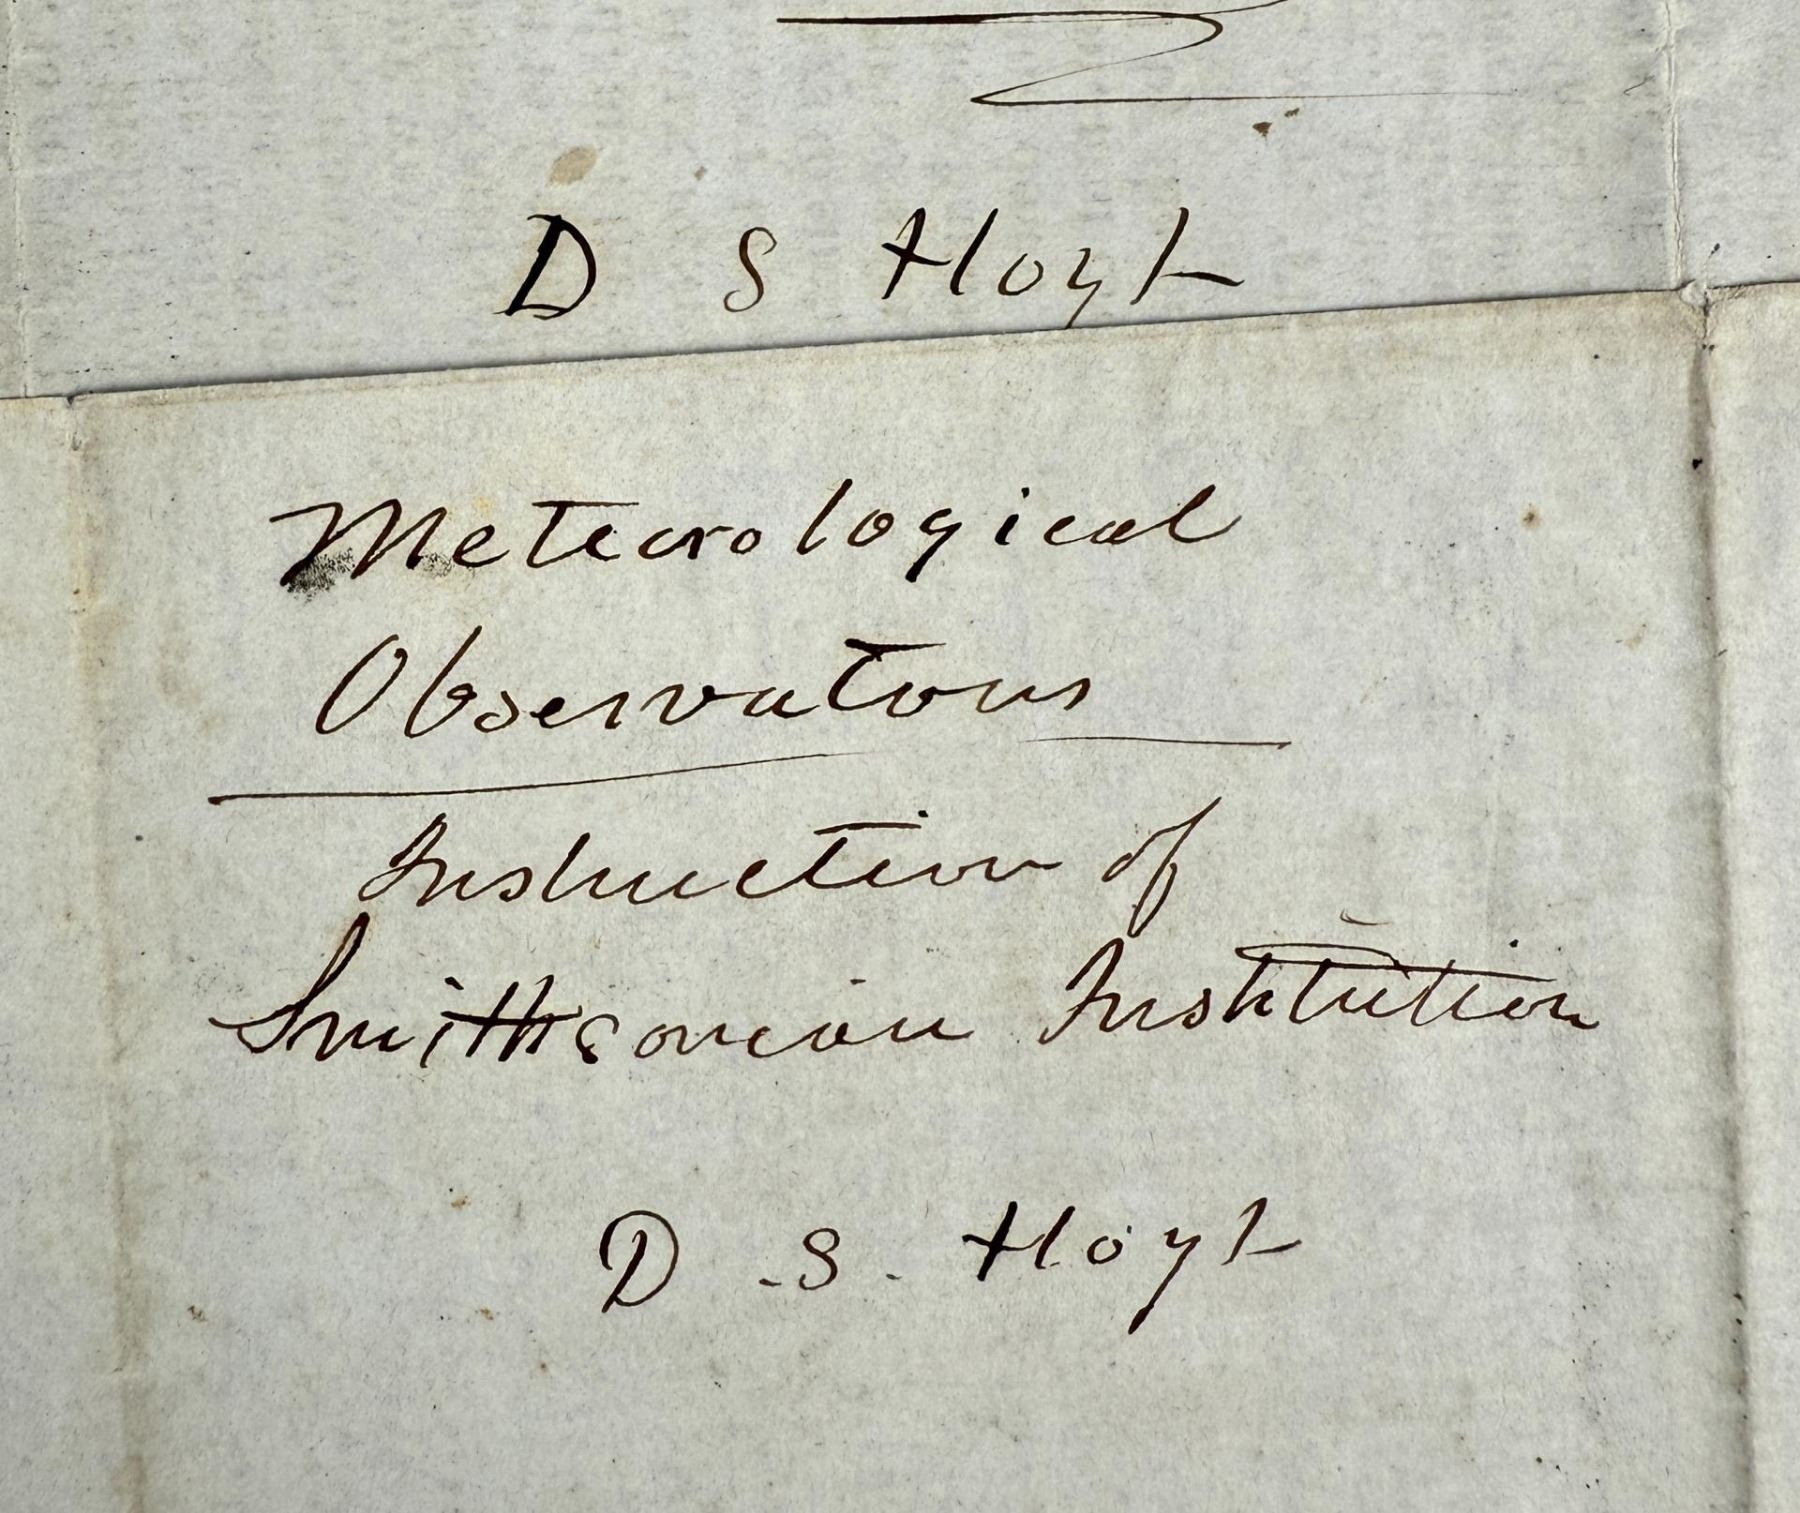 D S Hoyt
Meteorological
Observations
Instruction of
Smithsonian Institution
D. S. Hoyt